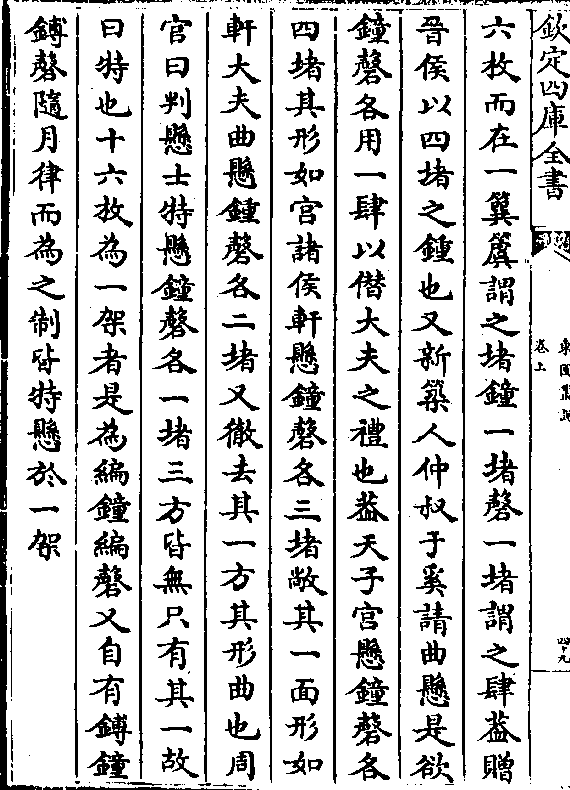 欽定四庫全書
東園叢説
卷上
四十九
六枚而在一簨簴謂之堵鐘一堵磬一堵謂之肆葢贈
晉侯以四堵之鍾也又新築人仲叔于奚請曲懸是欲
鐘磬各用一肆以僭大夫之禮也葢天子宫懸鐘磬各
四堵其形如宫諸侯軒懸鐘磬各三堵敞其一面形如
軒大夫曲懸鍾磬各二堵又徹去其一方其形曲也周
官曰判懸士特懸鐘磬各一堵三方皆無只有其一故
曰特也十六枚為一架者是為編鐘編磬又自有鎛鐘
鎛磬隨月律而為之制皆特懸於一架